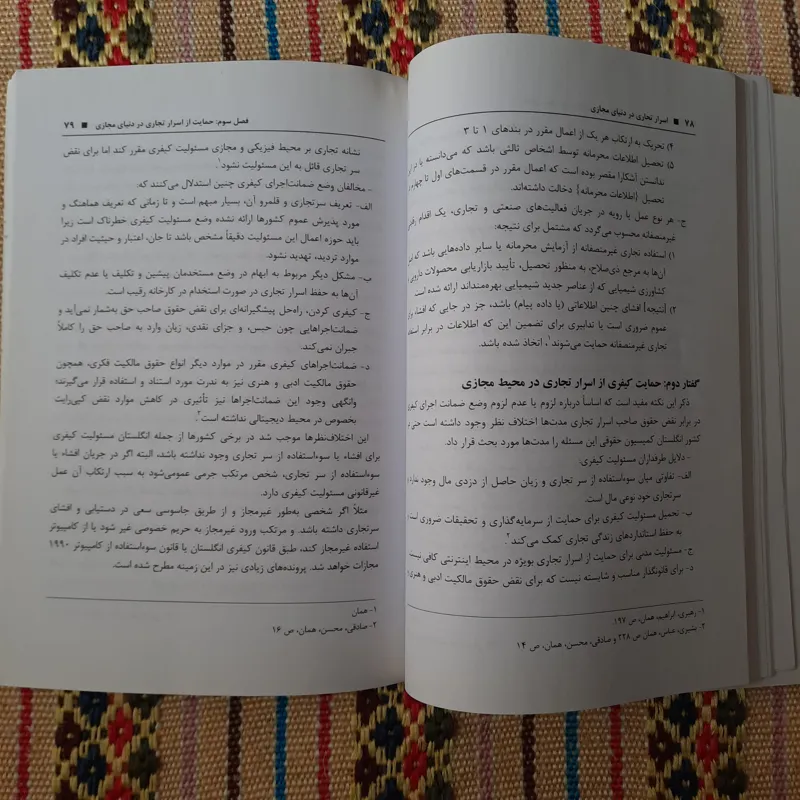 ۷۸ ■ اسرار تجاری در دنیای مجازی
۴) تحریک به ارتکاب هر یک از اعمال مقرر در بندهای ۱ تا ۳
۵) تحصیل اطلاعات محرمانه توسط اشخاص ثالثی باشد که می‌دانسته یا در این
ندانستن آشکارا مقصر بوده است که اعمال مقرر در قسمت‌های اول تا چهارم
تحصیل [اطلاعات محرمانه] دخالت داشته‌اند.
ج- هر نوع عمل یا رویه در جریان فعالیت‌های صنعتی و تجاری، یک اقدام
غیرمنصفانه محسوب می‌گردد که مشتمل برای نتیجه:
۱) استفاده تجاری غیرمنصفانه از آزمایش محرمانه یا سایر داده‌هایی باشد که
آن‌ها به مرجع ذی‌صلاح، به منظور تحصیل، تأیید بازاریابی محصولات دارویی
کشاورزی شیمیایی که از عناصر جدید شیمیایی بهره‌مندند ارائه شده است
۲) [نتیجه] افشای چنین اطلاعاتی (یا داده پیام) باشد، جز در جایی که افشاء
عموم ضروری است یا تدابیری برای تضمین این که اطلاعات در برابر
تجاری غیرمنصفانه حمایت می‌شوند۱، اتخاذ شده باشد.
گفتار دوم: حمایت کیفری از اسرار تجاری در محیط مجازی
ذکر این نکته مفید است که اساساً درباره لزوم یا عدم لزوم وضع ضمانت اجرای
در برابر نقض حقوق صاحب اسرار تجاری مدت‌ها اختلاف نظر وجود داشته است حتی
کشور انگلستان کمیسیون حقوقی این مسئله را مدت‌ها مورد بحث قرار داد.
- دلایل طرفداران مسئولیت کیفری:
الف- تفاوتی میان سوءاستفاده از سر تجاری و زیان حاصل از دزدی مال وجود
سرتجاری خود نوعی مال است.
ب- تحمیل مسئولیت کیفری برای حمایت از سرمایه‌گذاری و تحقیقات ضروری است
به حفظ استانداردهای زندگی تجاری کمک می‌کند.۲
ج- مسئولیت مدنی برای حمایت از اسرار تجاری بویژه در محیط اینترنتی کافی نیست
د- برای قانونگذار مناسب و شایسته نیست که برای نقض حقوق مالکیت ادبی و هنری
۱- رهبری، ابراهیم، همان، ص ۱۹۷.
۲. بشیری، عباس، همان ص ۲۲۸ و صادقی، محسن، همان، ص ۱۴
فصل سوم: حمایت از اسرار تجاری در دنیای مجازی ■ ۷۹
نشانه تجاری بر محیط فیزیکی و مجازی مسئولیت کیفری مقرر کند اما برای نقض
سر تجاری قائل به این مسئولیت نشود.۱
- مخالفان وضع ضمانت‌اجرای کیفری چنین استدلال می‌کنند که:
الف- تعریف سرتجاری و قلمرو آن، بسیار مبهم است و تا زمانی که تعریف هماهنگ و
مورد پذیرش عموم کشورها ارائه نشده وضع مسئولیت کیفری خطرناک است زیرا
باید حوزه اعمال این مسئولیت دقیقاً مشخص باشد تا جان، اعتبار و حیثیت افراد در
موارد تردید، تهدید نشود.
ب- مشکل دیگر مربوط به ابهام در وضع مستخدمان پیشین و تکلیف یا عدم تکلیف
آن‌ها به حفظ اسرار تجاری در صورت استخدام در کارخانه رقیب است.
ج- کیفری کردن، راه‌حل پیشگیرانه‌ای برای نقض حقوق صاحب حق به‌شمار نمی‌آید و
ضمانت‌اجراهایی چون حبس، و جزای نقدی، زیان وارد به صاحب حق را کاملاً
جبران نمی‌کند.
د- ضمانت‌اجراهای کیفری مقرر در موارد دیگر انواع حقوق مالکیت فکری، همچون
حقوق مالکیت ادبی و هنری نیز به ندرت مورد استناد و استفاده قرار می‌گیرند؛
وانگهی وجود این ضمانت‌اجراها نیز تأثیری در کاهش موارد نقض کپی‌رایت
بخصوص در محیط دیجیتالی نداشته است.۲
این اختلاف‌نظرها موجب شد در برخی کشورها از جمله انگلستان مسئولیت کیفری
برای افشاء یا سوءاستفاده از سر تجاری وجود نداشته باشد، البته اگر در جریان افشاء یا
سوءاستفاده از سر تجاری، شخص مرتکب جرمی عمومی‌شود به سبب ارتکاب آن عمل
غیرقانونی مسئولیت کیفری دارد.
مثلاً اگر شخصی به‌طور غیرمجاز و از طریق جاسوسی سعی در دستیابی و افشای
سرتجاری داشته باشد. و مرتکب ورود غیرمجاز به حریم خصوصی غیر شود یا از کامپیوتر
استفاده غیرمجاز کند، طبق قانون کیفری انگلستان یا قانون سوءاستفاده از کامپیوتر ۱۹۹۰
مجازات خواهد شد. پرونده‌های زیادی نیز در این زمینه مطرح شده است.
۱- همان
۲- صادقی، محسن، همان، ص ۱۶